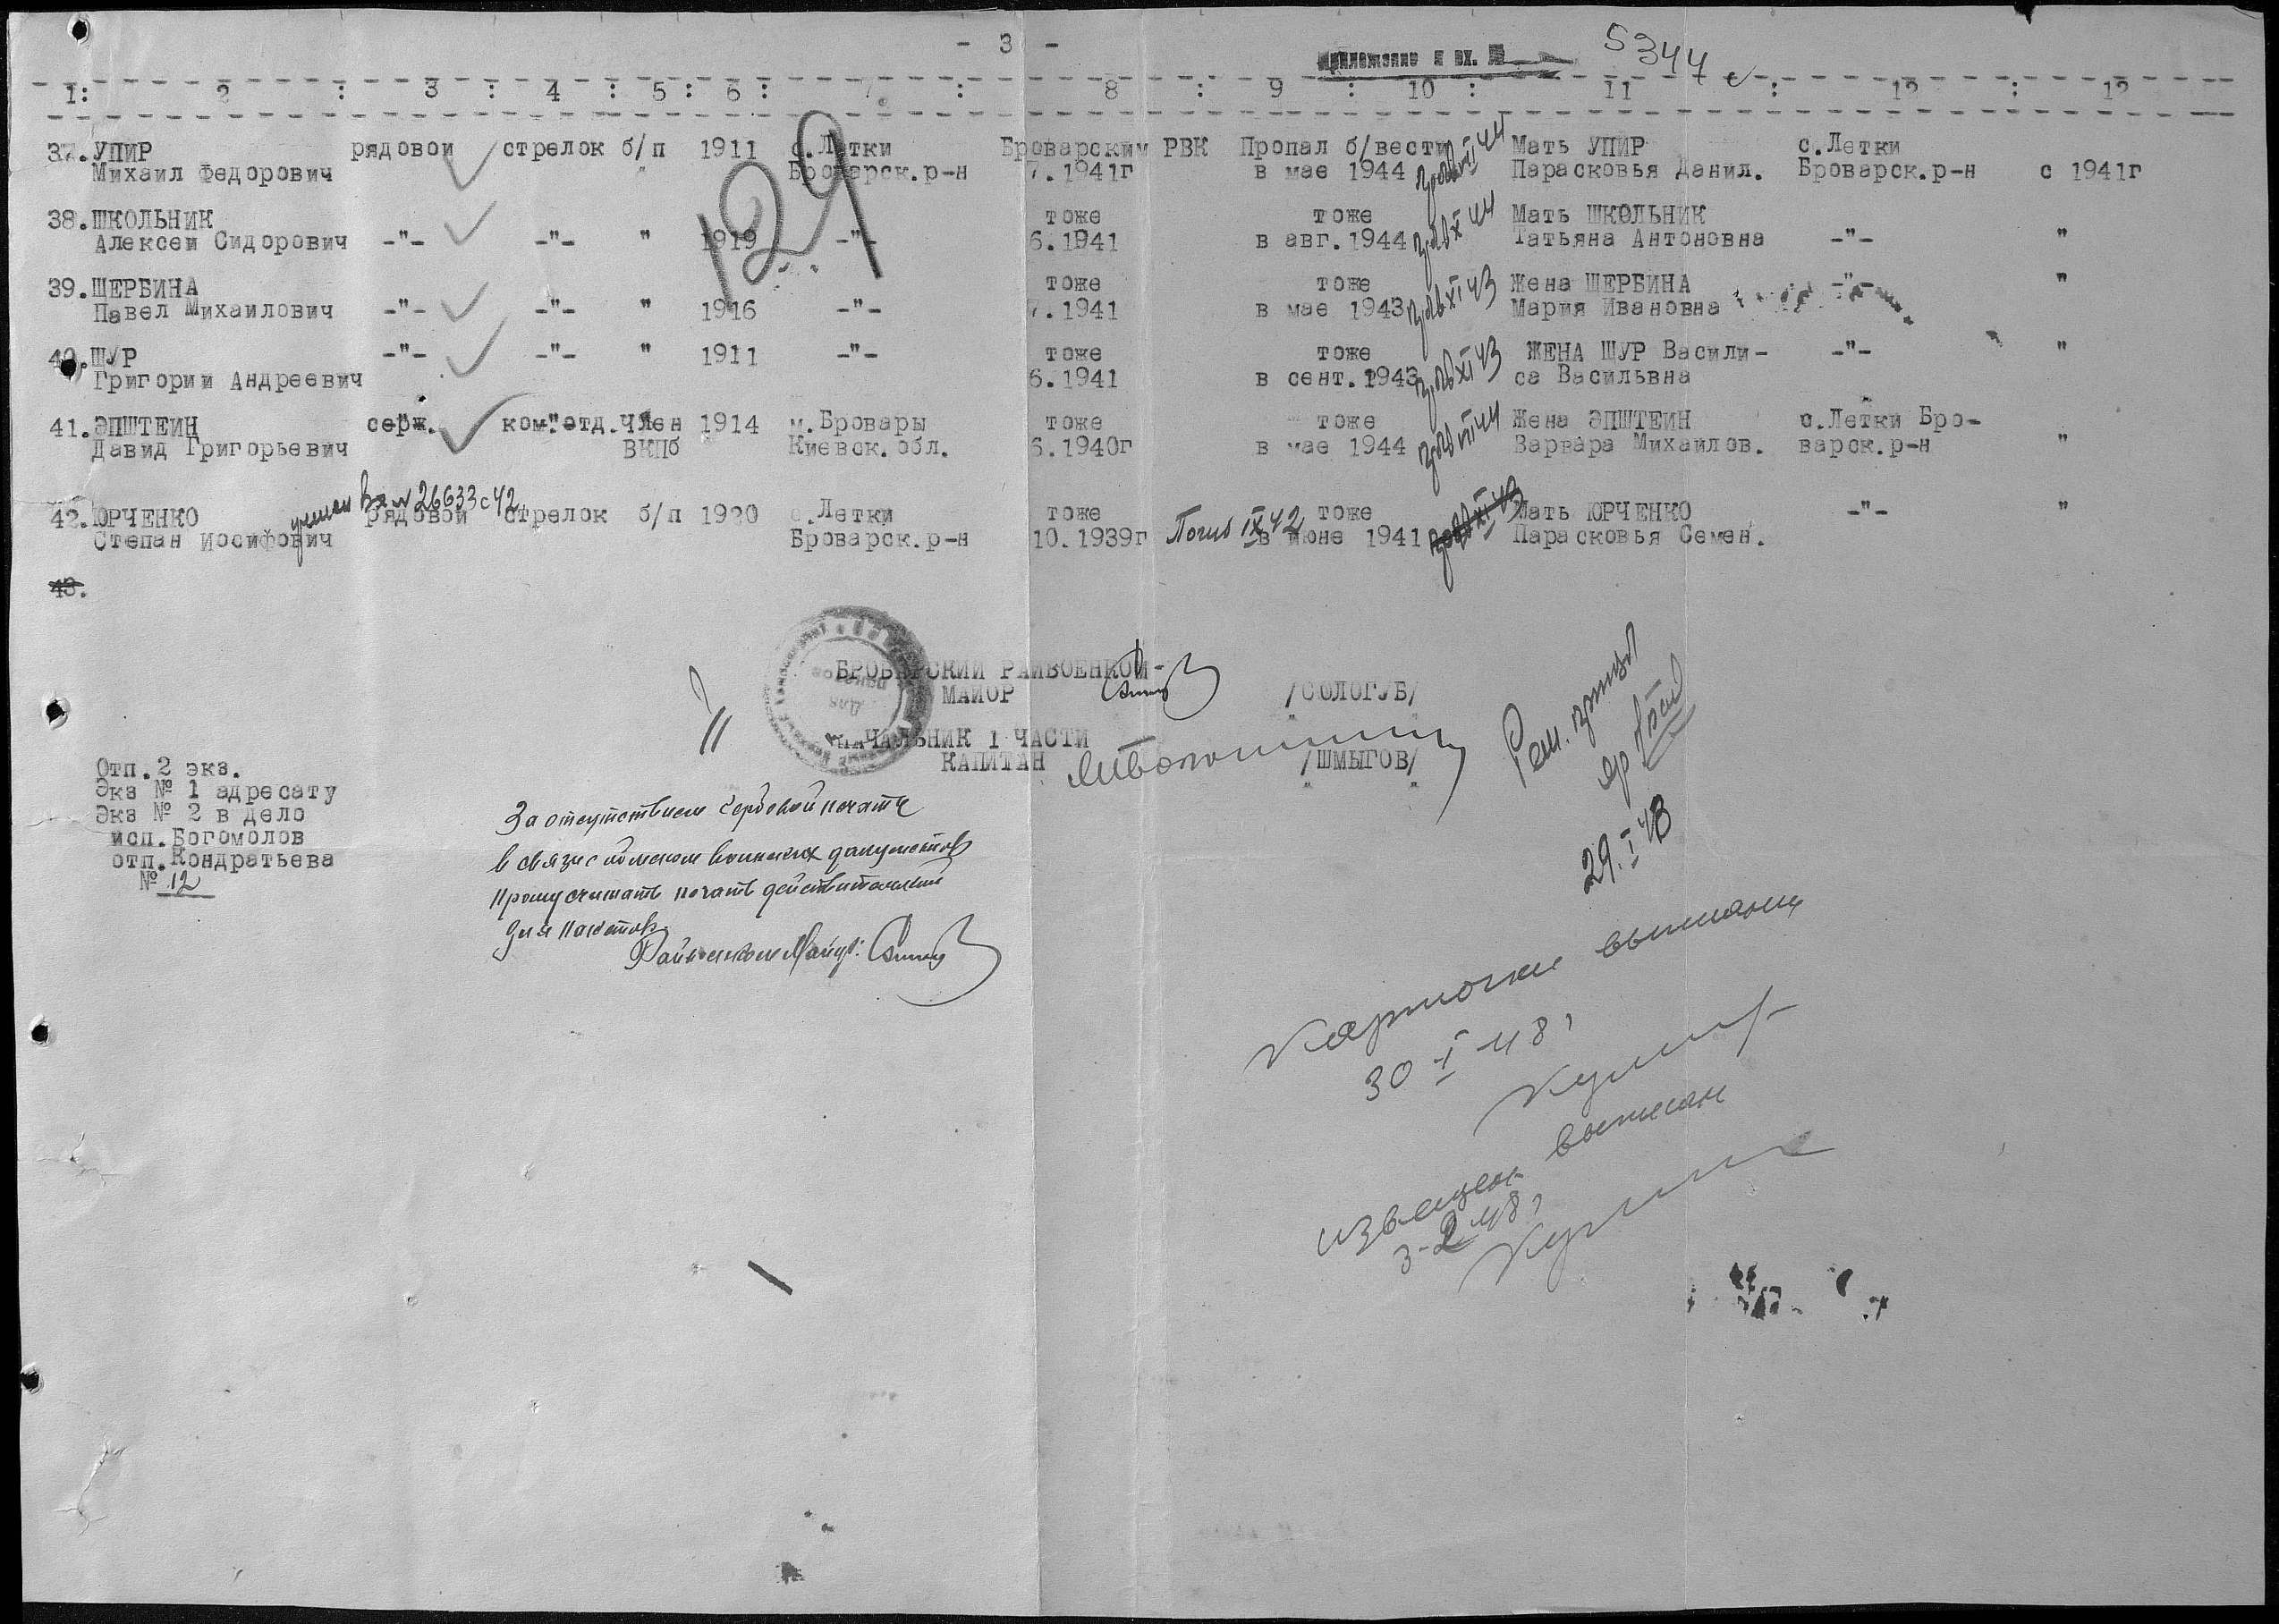 - 3 -
Приложение к вх. №
5344 с
1: 2 : 3 : 4 : 5 : 6 : 7 : 8 : 9 : 10 : 11 : 12 : 12
37. УПИР рядовой стрелок б/п 1911 с.Летки Броварским РВК Пропал б/вести Мать УПИР с.Летки
Михаил Федорович " Броварск.р-н 7.1941г в мае 1944 Парасковья Данил. Броварск.р-н с 1941г
129
38. ШКОЛЬНИК тоже тоже Мать ШКОЛЬНИК
Алексеи Сидорович -"- -"- " 1919 -"- 6.1941 в авг.1944 Татьяна Антоновна -"- "
39. ШЕРБИНА тоже тоже Жена ШЕРБИНА -"- "
Павел Михаилович -"- -"- " 1916 -"- 7.1941 в мае 1943 Мария Ивановна
40. ШУР -"- -"- " 1911 -"- тоже тоже ЖЕНА ШУР Васили- -"- "
Григории Андреевич 6.1941 в сент.1943 са Васильвна
41. ЭПШТЕИН серж. ком.отд. Член 1914 м.Бровары тоже тоже Жена ЭПШТЕИН с.Летки Бро-
Давид Григорьевич ВКПб Киевск.обл. 6.1940г в мае 1944 Варвара Михаилов. варск.р-н "
учтен Вх № 26633 с 42
42. ЮРЧЕНКО рядовой стрелок б/п 1920 с.Летки тоже Погиб IX 42 тоже Мать ЮРЧЕНКО -"- "
Степан Иосифович Броварск.р-н 10.1939г в июне 1941 Парасковья Семен.
43.
БРОВАРСКИЙ РАЙВОЕНКОМ-
МАЙОР /СОЛОГУБ/
НАЧАЛЬНИК 1 ЧАСТИ
КАПИТАН /ШМЫГОВ/
Для
пакетов
Отп.2 экз.
Экз № 1 адресату
Экз № 2 в дело
исп.Богомолов
отп.Кондратьева
№ 12
За отсутствием гербовой печати
в связи с обменом воинских документов
Прошу считать печать действительной
для пакетов
Райвоенком Майор:
29.I 48
Карточки выписаны
30 I 48,
извещен. выписан
3-2 48,